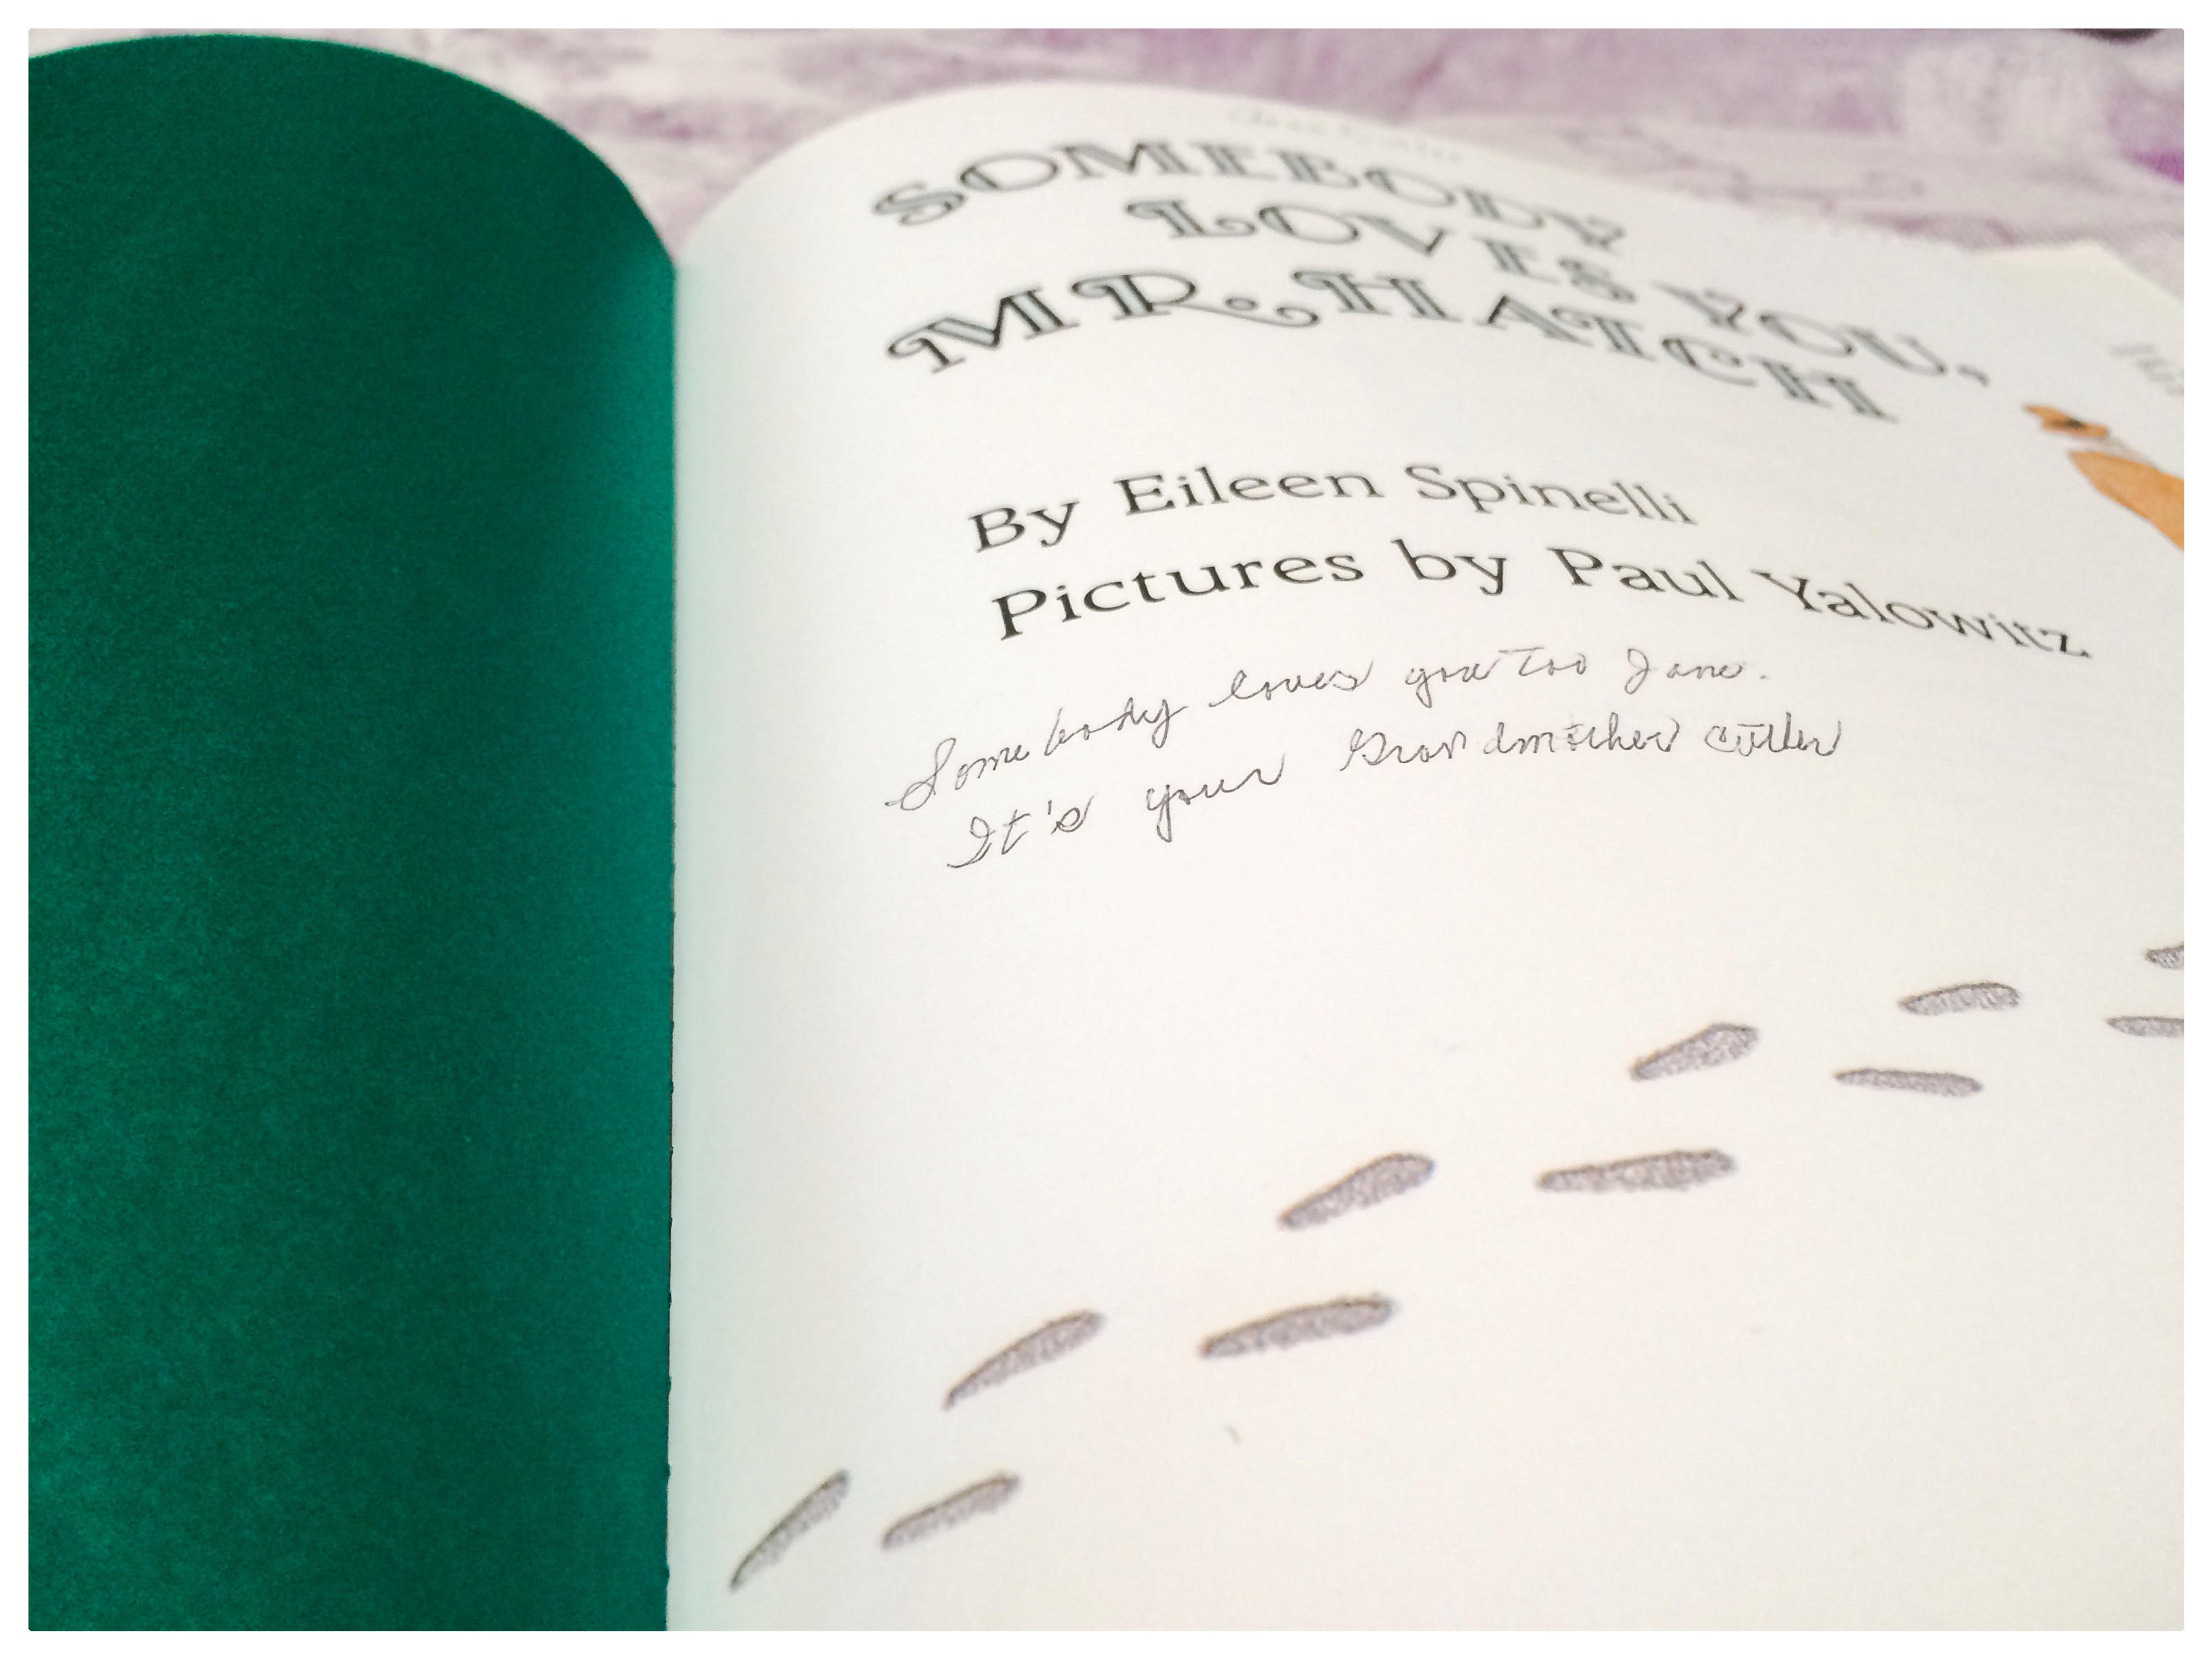 SOMEBODY
LOVES YOU,
MR. HATCH
By Eileen Spinelli
Pictures by Paul Yalowitz
Somebody loves you too Jane.
It's your Grandmother Cutler